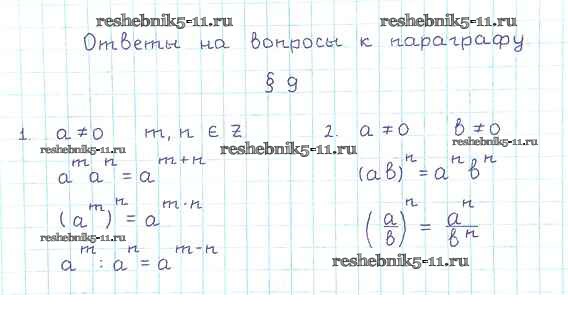 reshebnik5-11.ru
Ответы на вопросы к параграфу
§ 9
1. a ≠ 0 m, n ∈ Z
reshebnik5-11.ru
a^m a^n = a^{m+n}
(a^m)^n = a^{m·n}
reshebnik5-11.ru
a^m : a^n = a^{m-n}
reshebnik5-11.ru
2. a ≠ 0 b ≠ 0
reshebnik5-11.ru
(ab)^n = a^n b^n
(a/b)^n = a^n/b^n
reshebnik5-11.ru